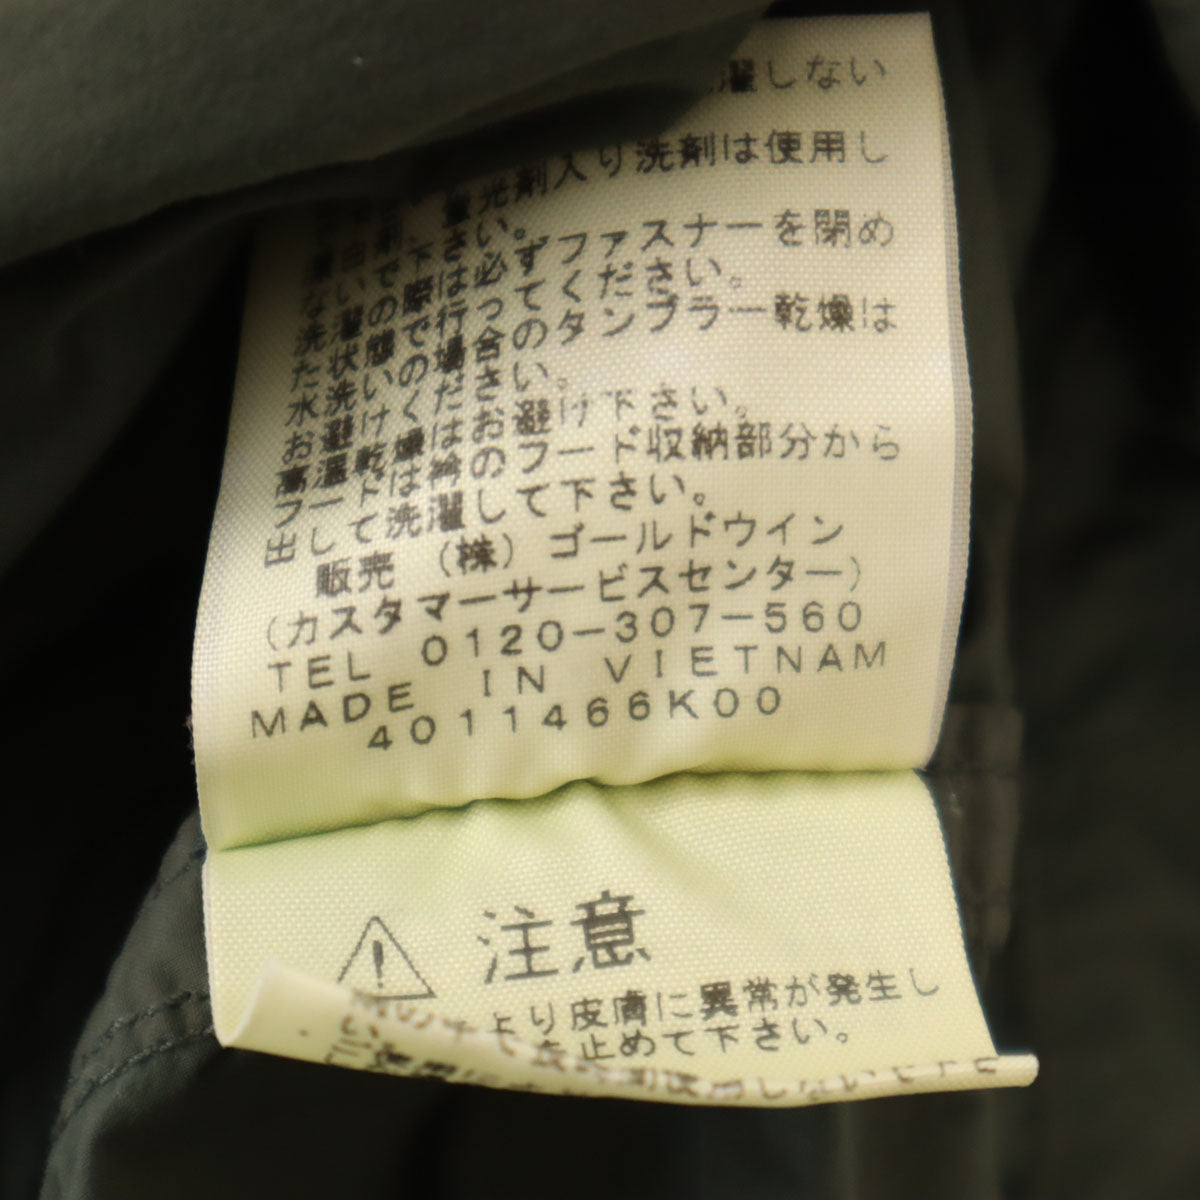 濯しない
蛍光剤入り洗剤は使用し
な さい。
洗濯の際は必ずファスナーを閉め
た状態で行ってください。
水洗いの場合のタンブラー乾燥は
お避けください。
高温乾燥はお避け下さい。
フードは衿のフード収納部分から
出して洗濯して下さい。
販売 (株) ゴールドウイン
(カスタマーサービスセンター)
TEL 0120-307-560
MADE IN VIETNAM
4011466K00
注意
より皮膚に異常が発生し
止めて下さい。
長時間使用しない